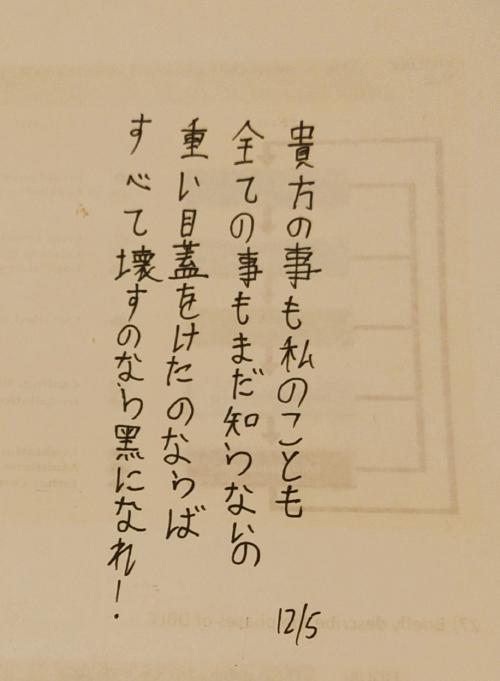 貴方の事も私のことも
全ての事もまだ知らないの
重い目蓋をけたのならば
すべて壊すのなら黒になれ!
12/5